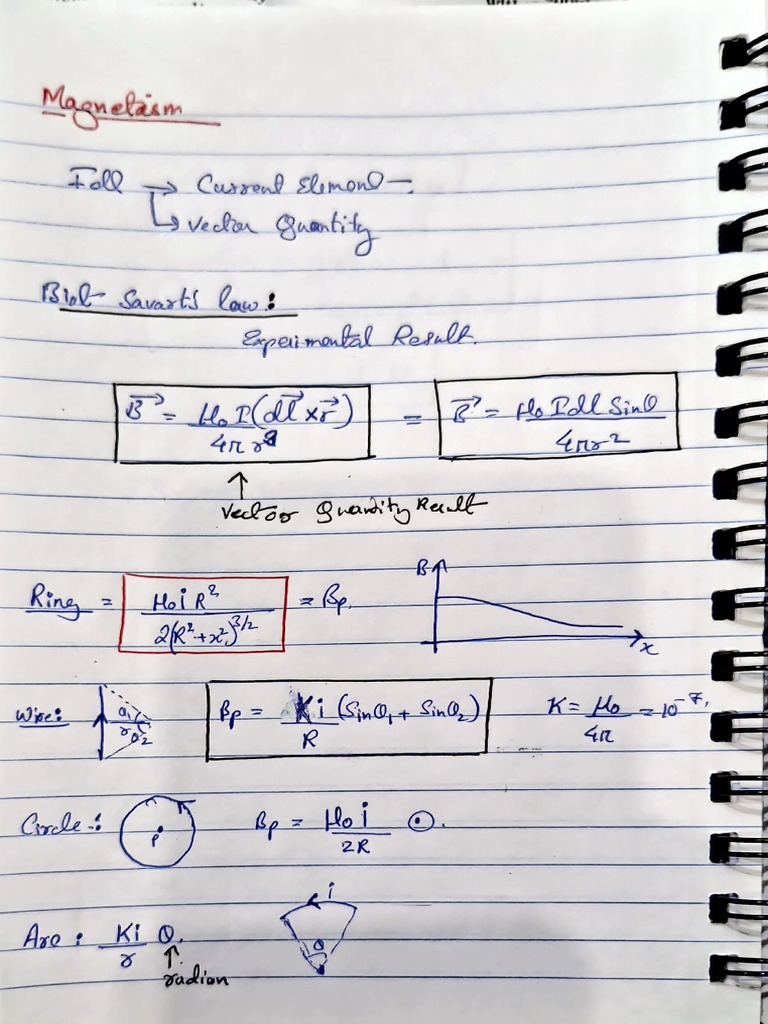 Magnetism
Idl → Current Element –
↳ vector Quantity
Biot Savart's law:
Experimental Result.
B⃗ = μ₀ I (dl⃗ × r⃗) / 4π r³ = B⃗ = μ₀ I dl Sinθ / 4πr²
↑
vector Quantity Result
Ring = μ₀ i R² / 2(R²+x²)^3/2 = Bp. B x
Wire: θ₁ r θ₂ Bp = K i / R (Sinθ₁ + Sinθ₂) K = μ₀ / 4π = 10⁻⁷,
Circle -: P Bp = μ₀ i / 2R ⊙.
Arc : Ki / r θ. i θ
↑
radian